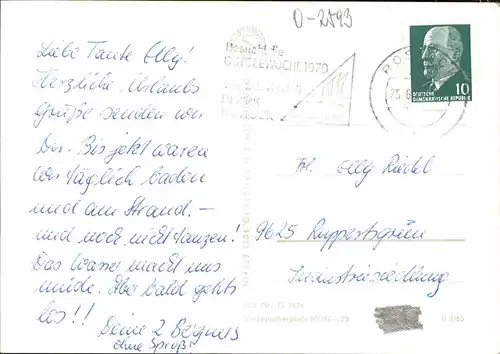 0-2593
Liebe Tante Elly!
Herzliche Urlaubs
Grüße senden wir
Dir. Bis jetzt waren
wir täglich baden
und am Strand. –
und noch nicht tanzen!
Das Wasser macht uns
müde. Aber bald geht's
los!!
Deine 2 Bergners
ohne Sproß!
Besucht die
OSTSEEWOCHE 1970
BEZIRK
ROSTOCK
10
DEUTSCHE
DEMOKRATISCHE REPUBLIK
Frl. Elly Riedel
9625 Ruppertsgrün
Industriesiedlung